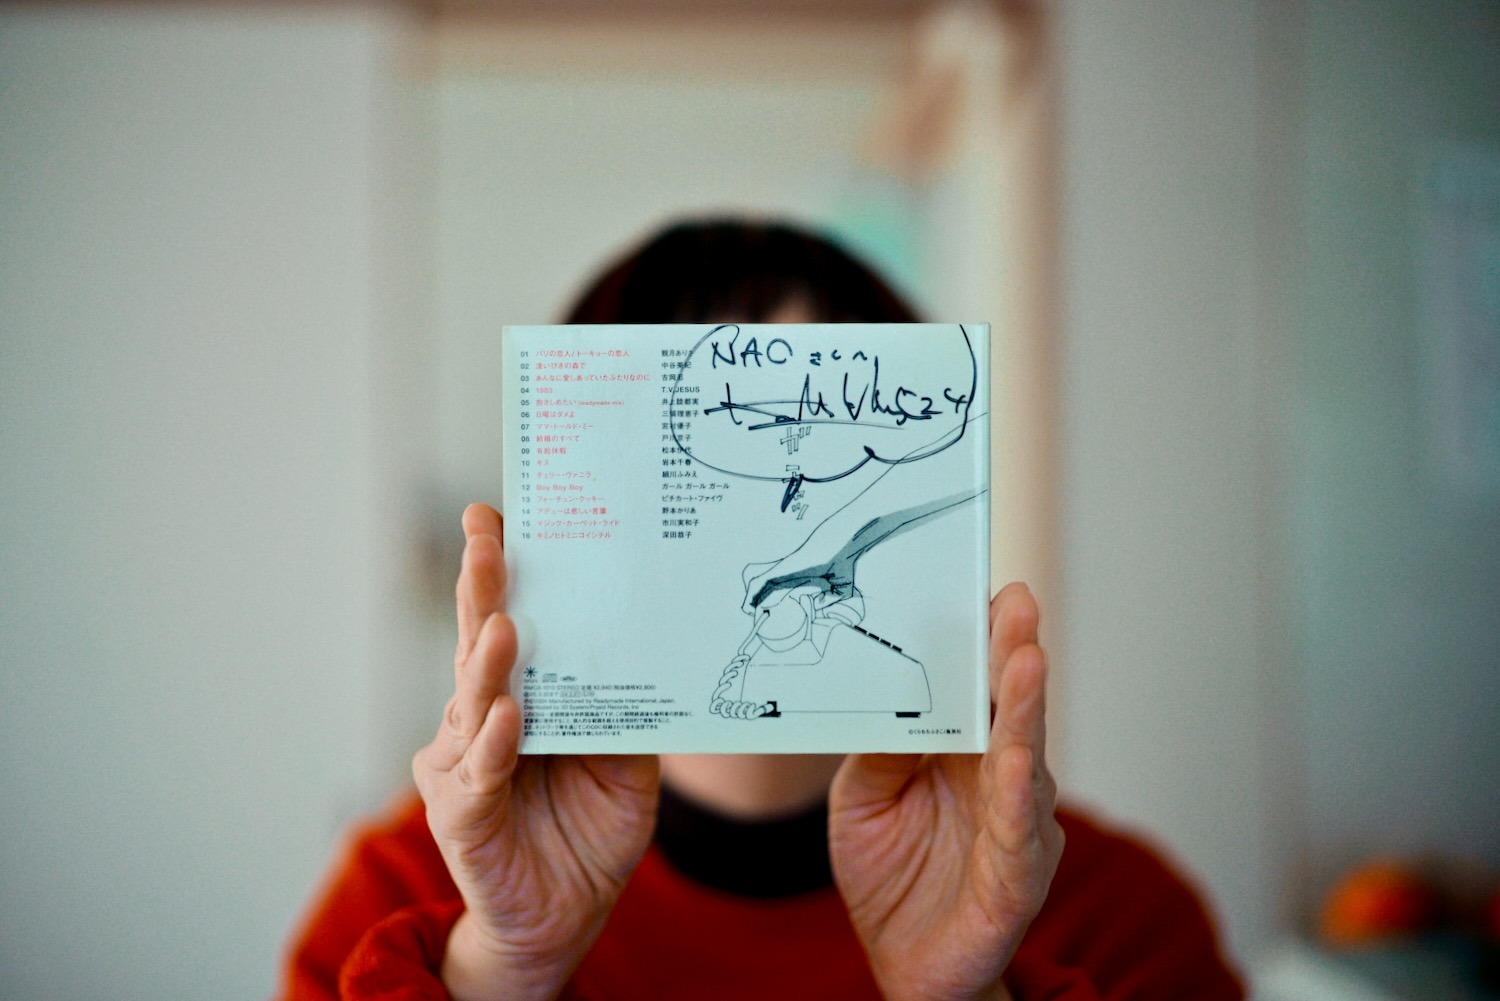 01 パリの恋人/トーキョーの恋人 観月ありさ
02 浅い眠りの森で 中谷美紀
03 あんなに愛しあっていたふたりなのに 吉岡忍
04 1983 T.V.JESUS
05 抱きしめたい (readymade mix) 井上睦都実
06 日曜はダメよ 三浦理恵子
07 ママ・トールド・ミー 宮村優子
08 結婚のすべて 戸川京子
09 有給休暇 松本伊代
10 キス 岩本千春
11 チェリー・ヴァニラ 細川ふみえ
12 Boy Boy Boy ガール ガール ガール
13 フォーチュン・クッキー ピチカート・ファイヴ
14 アデューは悲しい言葉 野本かりあ
15 マジック・カーペット・ライド 市川実和子
16 キミノヒトミニコイシテル 深田恭子
NAOさんへ
STEREO 定価 ¥2,940 (税抜価格¥2,800)
Manufactured by Readymade International, Japan.
©くらもちふさこ/集英社